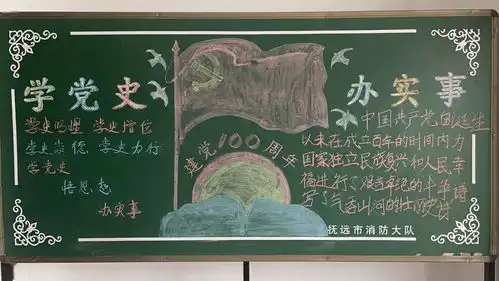 学党史
办实事
学史明理 学史增信
学史崇德 学史力行
学党史
悟思想
办实事
建党100周年
中国共产党自诞生
以来在成立百年的时间内为
国家独立民族复兴和人民幸
福进行了艰苦卓绝的斗争谱
写了气吞山河的壮丽史诗
抚远市消防大队